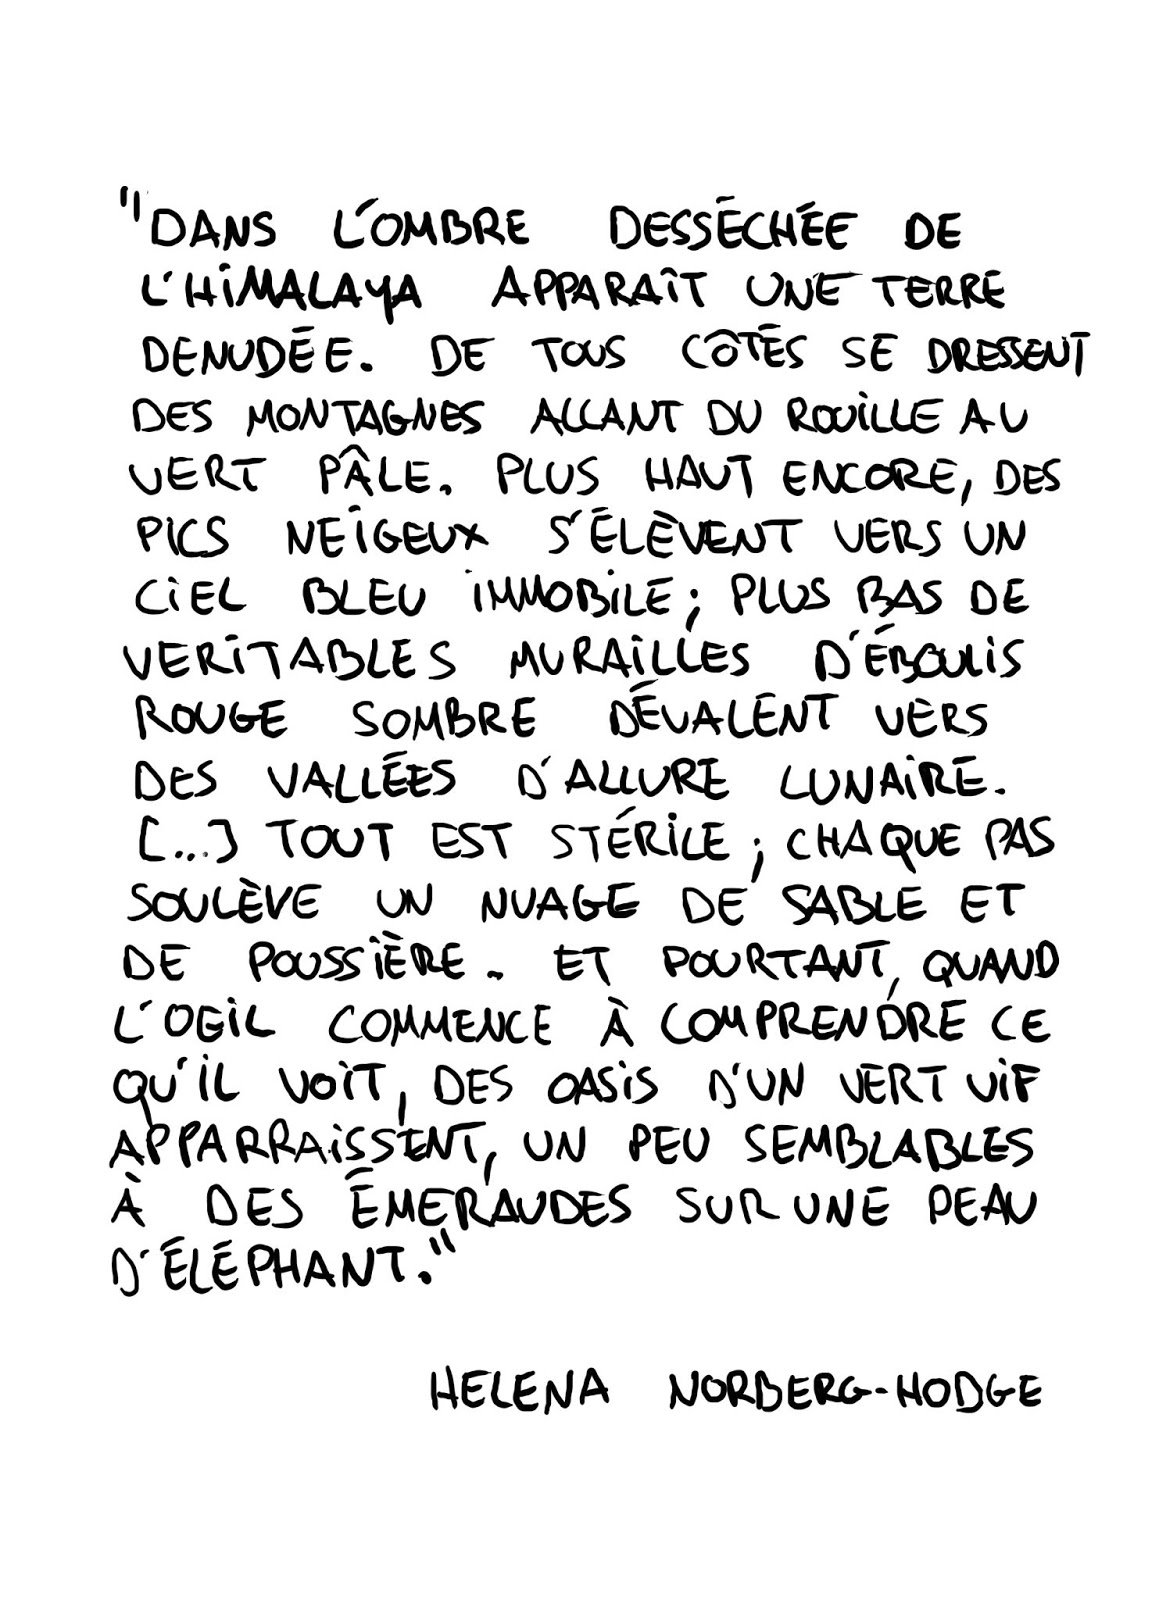 "DANS L'OMBRE DESSÉCHÉE DE
L'HIMALAYA APPARAÎT UNE TERRE
DENUDÉE. DE TOUS CÔTÉS SE DRESSENT
DES MONTAGNES ALLANT DU ROUILLE AU
VERT PÂLE. PLUS HAUT ENCORE, DES
PICS NEIGEUX S'ÉLÈVENT VERS UN
CIEL BLEU IMMOBILE ; PLUS BAS DE
VERITABLES MURAILLES D'ÉBOULIS
ROUGE SOMBRE DÉVALENT VERS
DES VALLÉES D'ALLURE LUNAIRE.
[...] TOUT EST STÉRILE ; CHAQUE PAS
SOULÈVE UN NUAGE DE SABLE ET
DE POUSSIÈRE. ET POURTANT, QUAND
L'OEIL COMMENCE À COMPRENDRE CE
QU'IL VOIT, DES OASIS D'UN VERT VIF
APPARRAISSENT, UN PEU SEMBLABLES
À DES ÉMERAUDES SUR UNE PEAU
D'ÉLÉPHANT."
HELENA NORBERG-HODGE